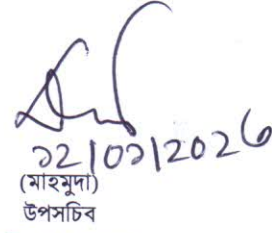 ১২|০১|২০২৬
(মাহমুদা)
উপসচিব